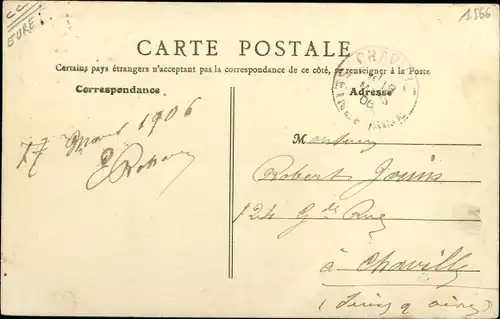 EURE
1566
CARTE POSTALE
Certains pays étrangers n'acceptant pas la correspondance de ce côté, se renseigner à la Poste
Correspondance
Adresse
CHAVILLE
17 Mars 1906
M onsieur
Robert
124 Gde Rue
à Chaville
(Seine & Oise)